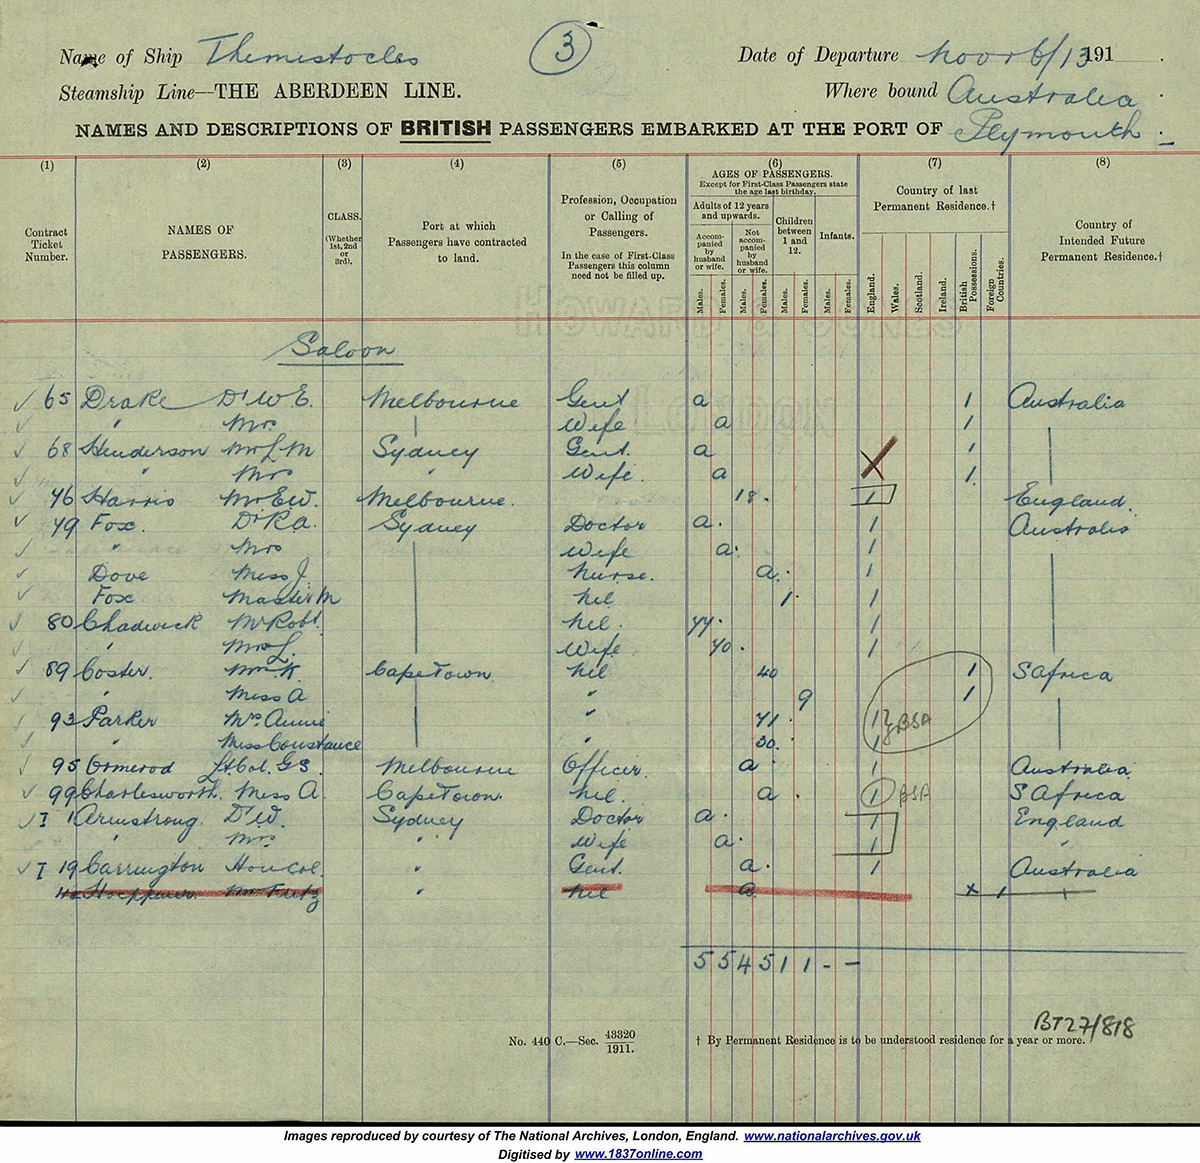 Name of Ship Themistocles
3
Date of Departure Novr 6/13 191
Steamship Line—THE ABERDEEN LINE.
Where bound Australia
NAMES AND DESCRIPTIONS OF BRITISH PASSENGERS EMBARKED AT THE PORT OF Plymouth
(1) (2) (3) (4) (5) (6) (7) (8)
Contract Ticket Number.
NAMES OF PASSENGERS.
CLASS. (Whether 1st, 2nd or 3rd).
Port at which Passengers have contracted to land.
Profession, Occupation or Calling of Passengers.
In the case of First-Class Passengers this column need not be filled up.
AGES OF PASSENGERS.
Except for First-Class Passengers state the age last birthday.
Adults of 12 years and upwards.
Accompanied by husband or wife.
Not accompanied by husband or wife.
Children between 1 and 12.
Infants.
Males. Females. Males. Females. Males. Females. Males. Females.
Country of last Permanent Residence.†
England. Wales. Scotland. Ireland. British Possessions. Foreign Countries.
Country of Intended Future Permanent Residence.†
Saloon
65 Drake Dr W.E. Melbourne Gent a 1 Australia
" Mrs Wife a 1
68 Henderson Mr L M Sydney Gent. a 1
" Mrs " Wife. a 1
76 Harris Mr E W. Melbourne. 18. 1 England.
79 Fox. Dr R.a. Sydney Doctor a. 1 Australia
" Mrs Wife a. 1
Dove Miss J. Nurse. a. 1
Fox Master M Nil 1 1
80 Chadwick Mr Robt. Nil. 44. 1
" Mrs L. Wife 40. 1
89 Coster. Mrs K. Cape Town Nil 40 1 S Africa
" Miss A " 9 1
93 Parker Mrs Annie " 41. 1 BSA
" Miss Constance " 30. 1
95 Ormerod Lt. Col. G S. Melbourne Officer. a. 1 Australia.
99 Charlesworth. Miss A. Cape Town. Nil. a. 1 BSA S Africa
I 1 Armstrong. Dr W. Sydney Doctor a. 1 England
" Mrs " Wife a. 1 "
I 19 Carrington Hon Col. " Gent. a. 1 Australia
Mr Fritz " Nil a. x 1
5 5 4 5 1 1 - -
BT27/818
No. 440 C.—Sec. 43320/1911.
† By Permanent Residence is to be understood residence for a year or more.
Images reproduced by courtesy of The National Archives, London, England. www.nationalarchives.gov.uk
Digitised by www.1837online.com